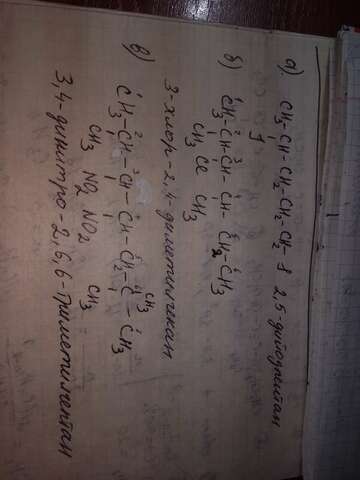 а). CH3-CH-CH2-CH2-CH2-J 2,5-дийодпентан
J
б) 1CH3-2CH-3CH-4CH-5CH2-6CH3
CH3 Cl CH3
3-хлор-2,4-диметилгексан
в) 1CH3-2CH-3CH-4CH-5CH2-6C-7CH3
CH3
CH3 NO2 NO2 CH3
3,4-динитро-2,6,6-триметилгептан